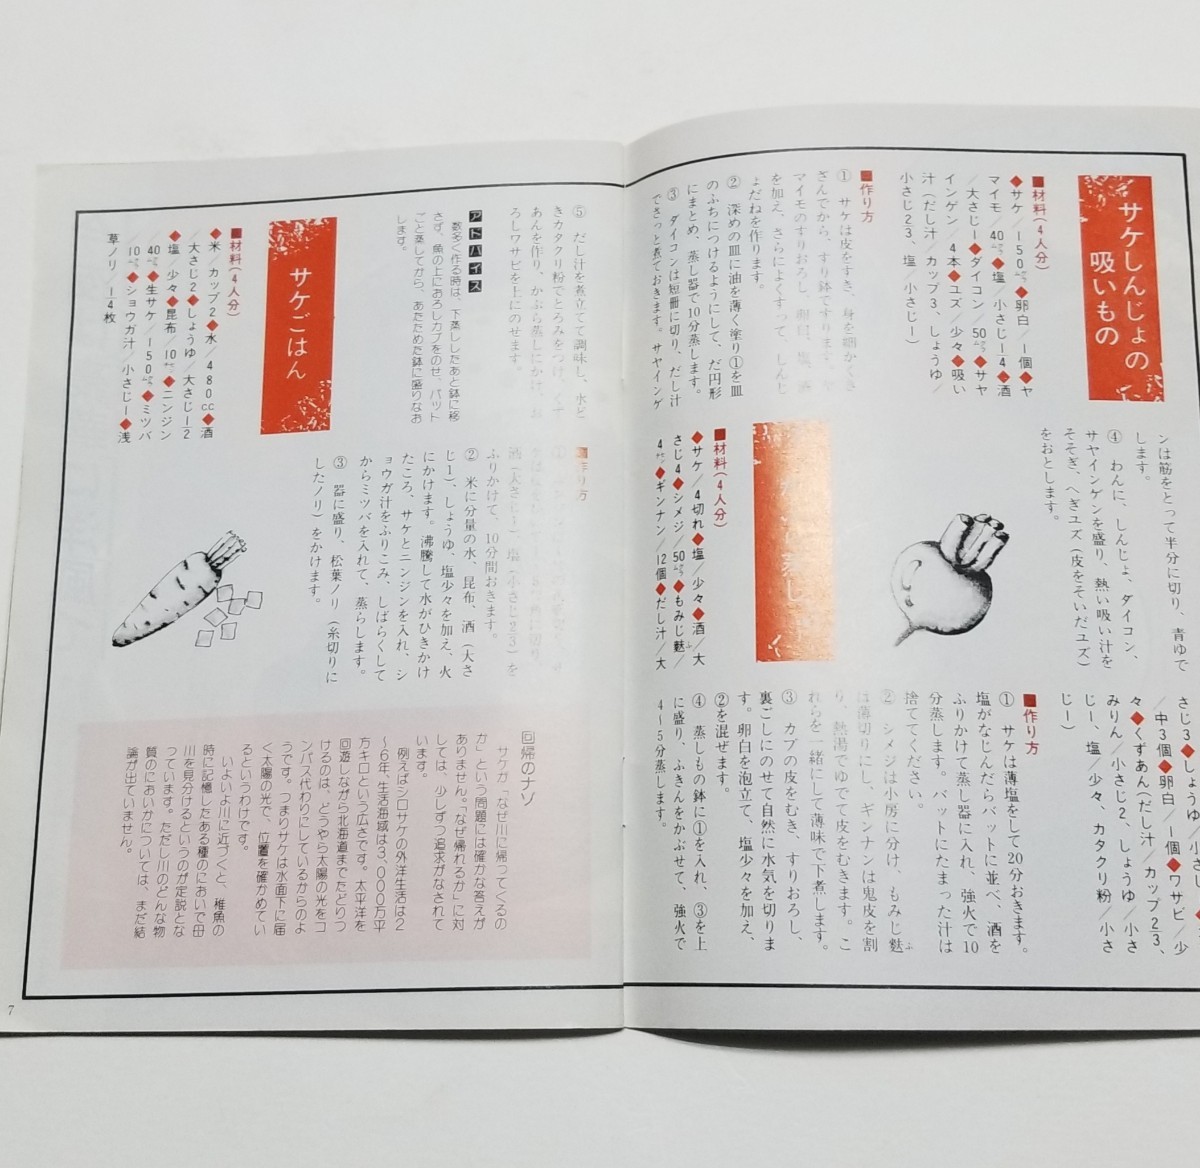 サケしんじょの
吸いもの
■材料(4人分)
◆サケ/150㌘◆卵白/1個◆ヤ
マイモ/40㌘◆塩/小さじ1/4◆酒
/大さじ1◆ダイコン/50㌘◆サヤ
インゲン/4本◆ユズ/少々◆吸い
汁(だし汁/カップ3、しょうゆ/
小さじ2/3、塩/小さじ1)
■作り方
① サケは皮をすき、身を細かくき
ざんでから、すり鉢ですります。
マイモのすりおろし、卵白、塩、
を加え、さらによくすって、しんじ
ょだねを作ります。
② 深めの皿に油を薄く塗り①を皿
のふちにつけるようにして、だ円形
にまとめ、蒸し器で10分蒸します。
③ ダイコンは短冊に切り、だし汁
でさっと煮ておきます。サヤインゲ
ンは筋をとって半分に切り、青ゆで
します。
④ わんに、しんじょ、ダイコン、
サヤインゲンを盛り、熱い吸い汁を
そそぎ、へぎユズ(皮をそいだユズ)
をおとします。
蒸し
■材料(4人分)
◆サケ/4切れ◆塩/少々◆酒/大
さじ4◆シメジ/50㌘◆もみじ麩/ふ
4㌢◆ギンナン/12個◆だし汁/大
さじ3◆しょうゆ/小さじ
/中3個◆卵白/1個◆ワサビ/少
々◆くずあん(だし汁/カップ2/3、
みりん/小さじ2、しょうゆ/小さ
じ1、塩/少々、カタクリ粉/小さ
じ1)
■作り方
① サケは薄塩をして20分おきます。
塩がなじんだらバットに並べ、酒を
ふりかけて蒸し器に入れ、強火で10
分蒸します。バットにたまった汁は
捨ててください。
② シメジは小房に分け、もみじ麩ふ
は薄切りにし、ギンナンは鬼皮を割
り、熱湯でゆでて皮をむきます。こ
れらを一緒にして薄味で下煮します。
③ カブの皮をむき、すりおろし、
裏ごしにのせて自然に水気を切りま
す。卵白を泡立て、塩少々を加え、
②を混ぜます。
④ 蒸しもの鉢に①を入れ、③を上
に盛り、ふきんをかぶせて、強火で
4〜5分蒸します。
⑤ だし汁を煮立てて調味し、水ど
きカタクリ粉でとろみをつけ、くず
あんを作り、かぶら蒸しにかけ、お
ろしワサビを上にのせます。
アドバイス
数多く作る時は、下蒸ししたあと鉢に移
さず、魚の上におろしカブをのせ、バット
ごと蒸してから、あたためた鉢に盛りなお
します。
サケごはん
■材料(4人分)
◆米/カップ2◆水/480cc◆酒
/大さじ2◆しょうゆ/大さじ1/2
◆塩/少々◆昆布/10㌢◆ニンジン
/40㌘◆生サケ/150㌘◆ミツバ
/10㌘◆ショウガ汁/小さじ1◆浅
草ノリ/1/4枚
■作り方
酒(大さじ1)、塩(小さじ2/3)を
ふりかけて、10分間おきます。
② 米に分量の水、昆布、酒(大さ
じ1)、しょうゆ、塩少々を加え、火
にかけます。沸騰して水がひきかけ
たころ、サケとニンジンを入れ、シ
ョウガ汁をふりこみ、しばらくして
からミツバを入れて、蒸らします。
③ 器に盛り、松葉ノリ(糸切りに
したノリ)をかけます。
回帰のナゾ
サケが「なぜ川に帰ってくるの
か」という問題には確かな答えが
ありません。「なぜ帰れるか」に対
しては、少しずつ追求がなされて
います。
例えばシロサケの外洋生活は2
〜6年、生活海域は3、000万平
方キロという広さです。太平洋を
回遊しながら北海道までたどりつ
けるのは、どうやら太陽の光をコ
ンパス代わりにしているからのよ
うです。つまりサケは水面下に届
く太陽の光で、位置を確かめてい
るというわけです。
いよいよ川に近づくと、稚魚の
時に記憶したある種のにおいで母
川を見分けるというのが定説とな
っています。ただし川のどんな物
質のにおいかについては、まだ結
論が出ていません。
7